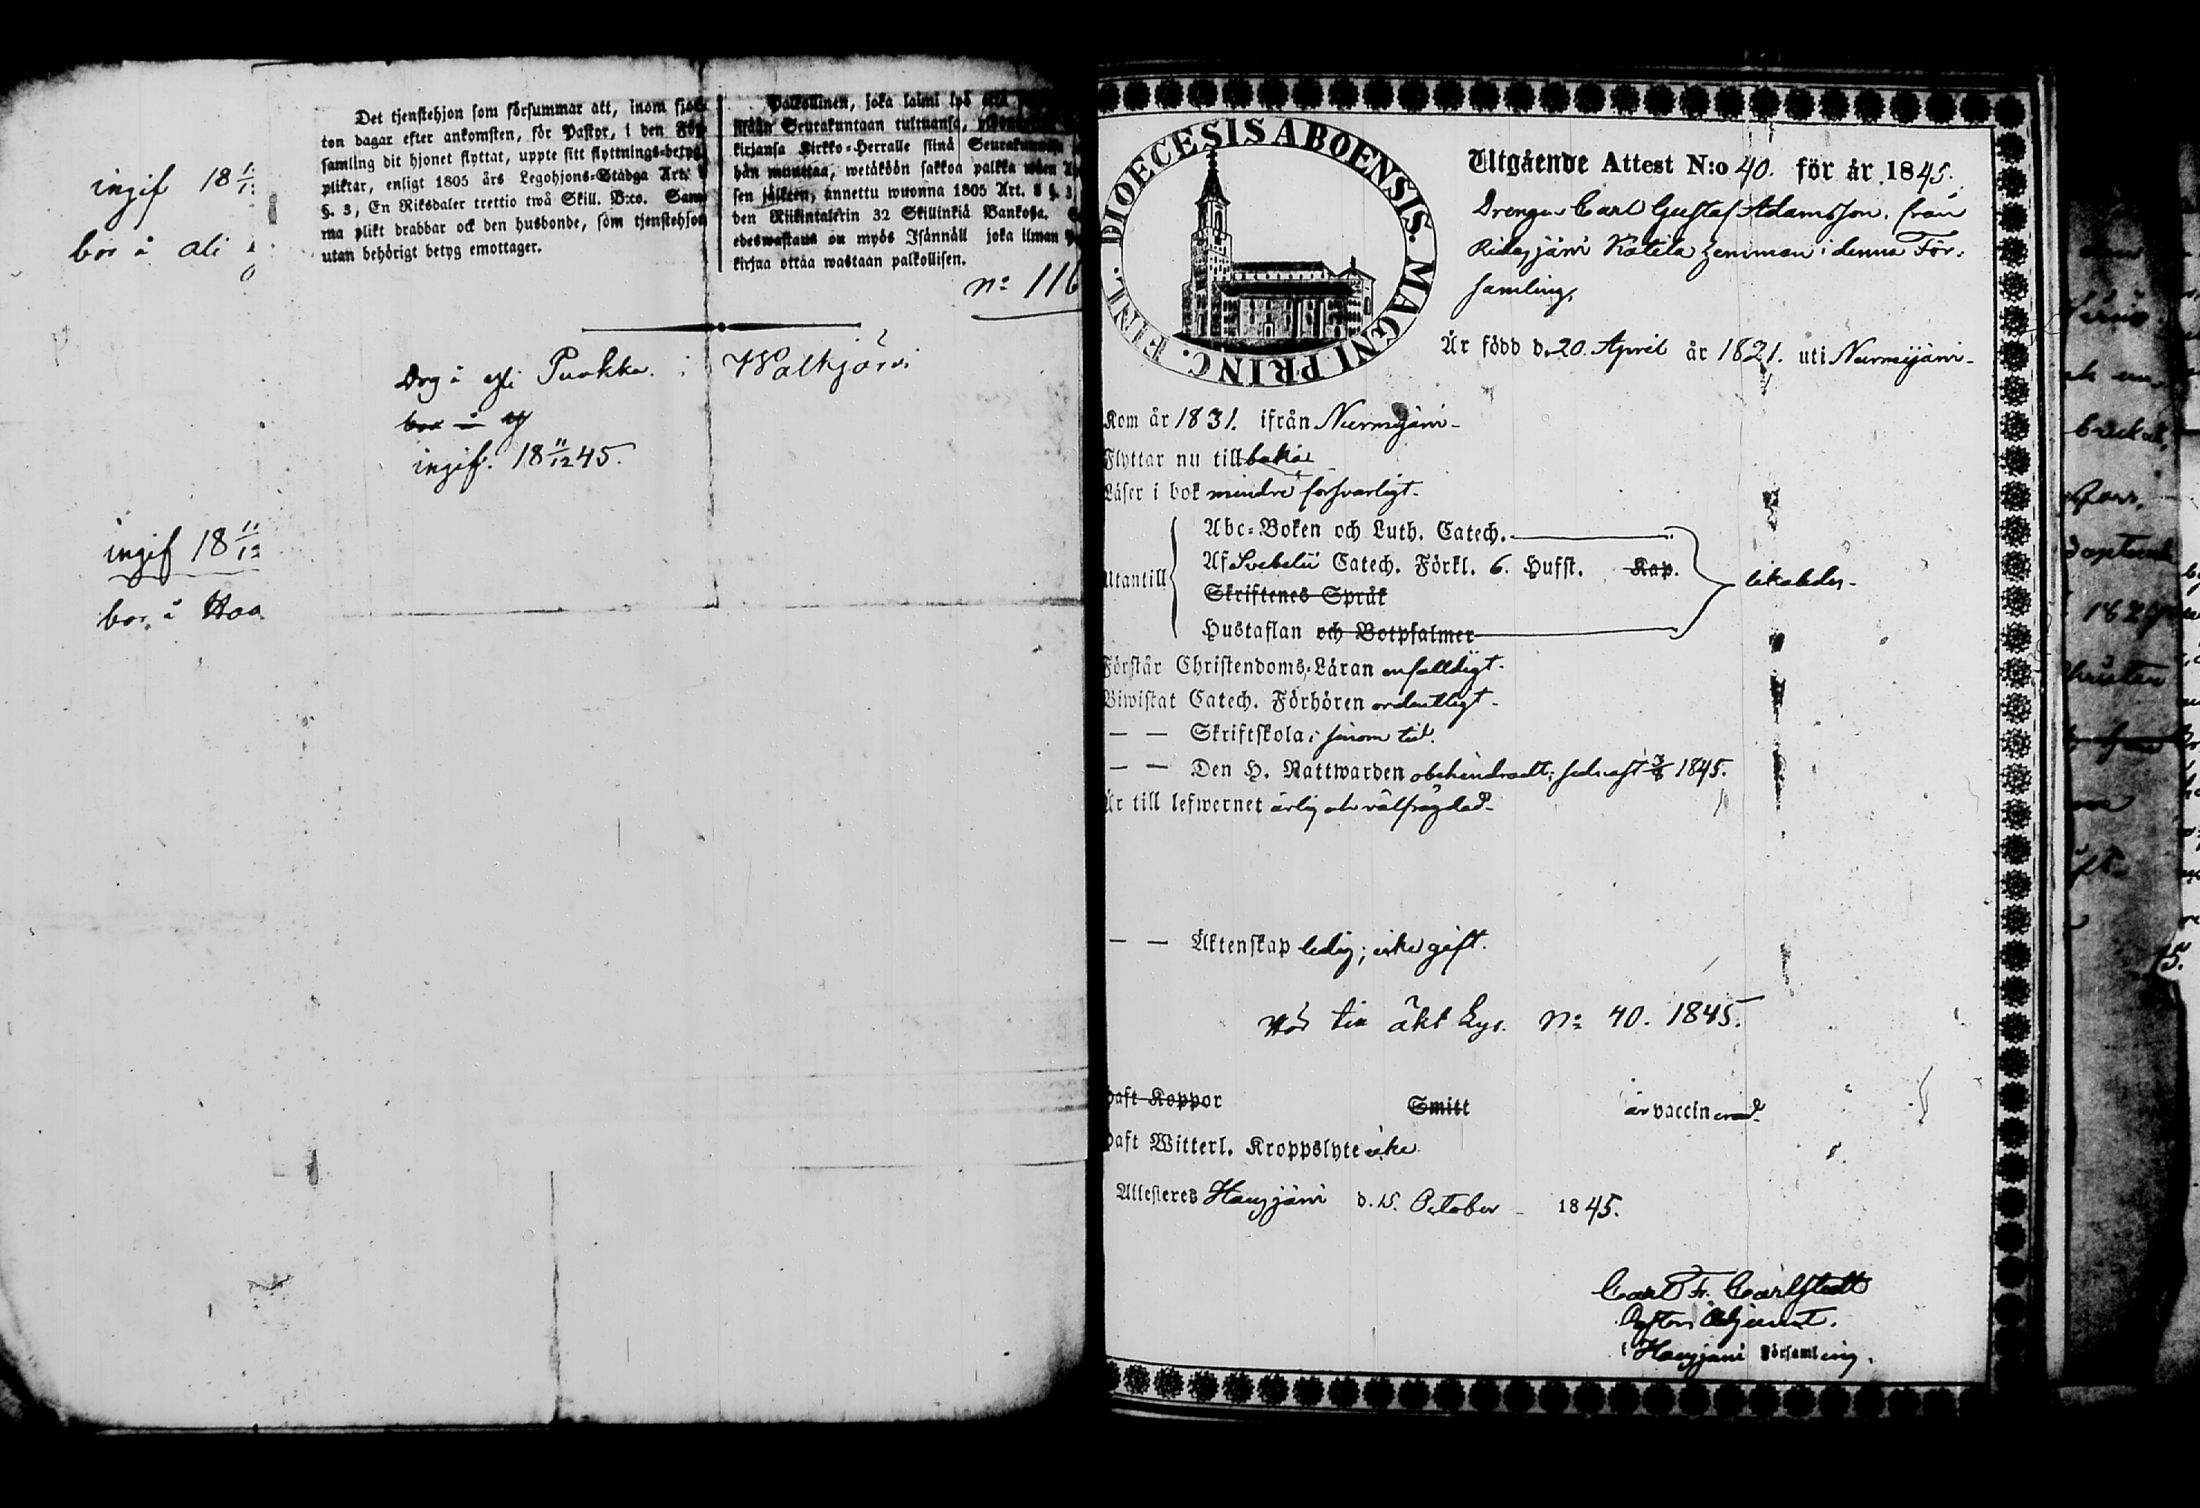 Det tjenstehjon som försummar att, inom fjor-
ton dagar efter ankomsten, för Pastor, i den För-
samling dit hjonet flyttat, uppte sitt flyttnings-betyg
pliktar, enligt 1805 års Legohjons-Stadga Art.
§. 3, En Riksdaler trettio twå Skill. B:co. Sam-
ma plikt drabbar ock den husbonde, som tjenstehjon
utan behörigt betyg emottager.
Palkollinen, joka laimi lyö
Seurakuntaan tultuansa,
kirjansa Kirkko-Herralle siinä Seurakunnassa
hän muuttaa, wetäköön sakkoa palkka wäen
sen jälkeen, annettu wuonna 1805 Art. 8 §. 3,
den Riikintalerin 32 Skillinkiä Bankossa.
edeswastaus on myös Isännäll joka ilman
kirjaa ottaa wastaan palkollisen.
No 116
ingif 18
bor å ali
Drg å ali Puokka i Walkjärvi
bor å
ingif. 18 11/12 45.
ingif 18 11/12
bor å Haa
DIOECESIS ABOENSIS. MAGNI PRINC. FINL.
Utgående Attest N:o 40. för år 1845.
Drengen Carl Gustaf Adamsson, från
Ridasjärvi Katila hemman i denna För-
samling,
Är född d. 20. April år 1821. uti Nurmijärvi-
Kom år 1831. ifrån Nurmijärvi-
Flyttar nu till baka
Läser i bok mindre försvarligt.
Utantill
Abc-Boken och Luth. Catech.
Af Svebelii Catech. Förkl. 6. Hufst. Kap.
Skriftenes Språk
Hustaflan och Botpsalmer
likaledes-
Förstår Christendoms-Läran enfaldigt.
Biwistat Catech. Förhören ordentligt-
— — Skriftskola i sinom tid.
— — Den H. Nattwarden obehindradt; sednast 3/8 1845.
Är till lefwernet ärlig och välfrägdad-
— — Äktenskap ledig; icke gift.
No 40. 1845.
haft Koppor Smitt är vaccinerad.
haft Witterl. Kroppslyte icke
Attesteres Hausjärvi d. 15. October 1845.
Carl Fr. Carlstedt
Adjunct.
i Hausjärvi Församling.